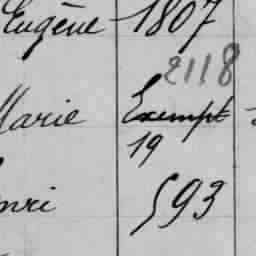 Eugène 1807
2118
Marie Exempt
19
nri 593